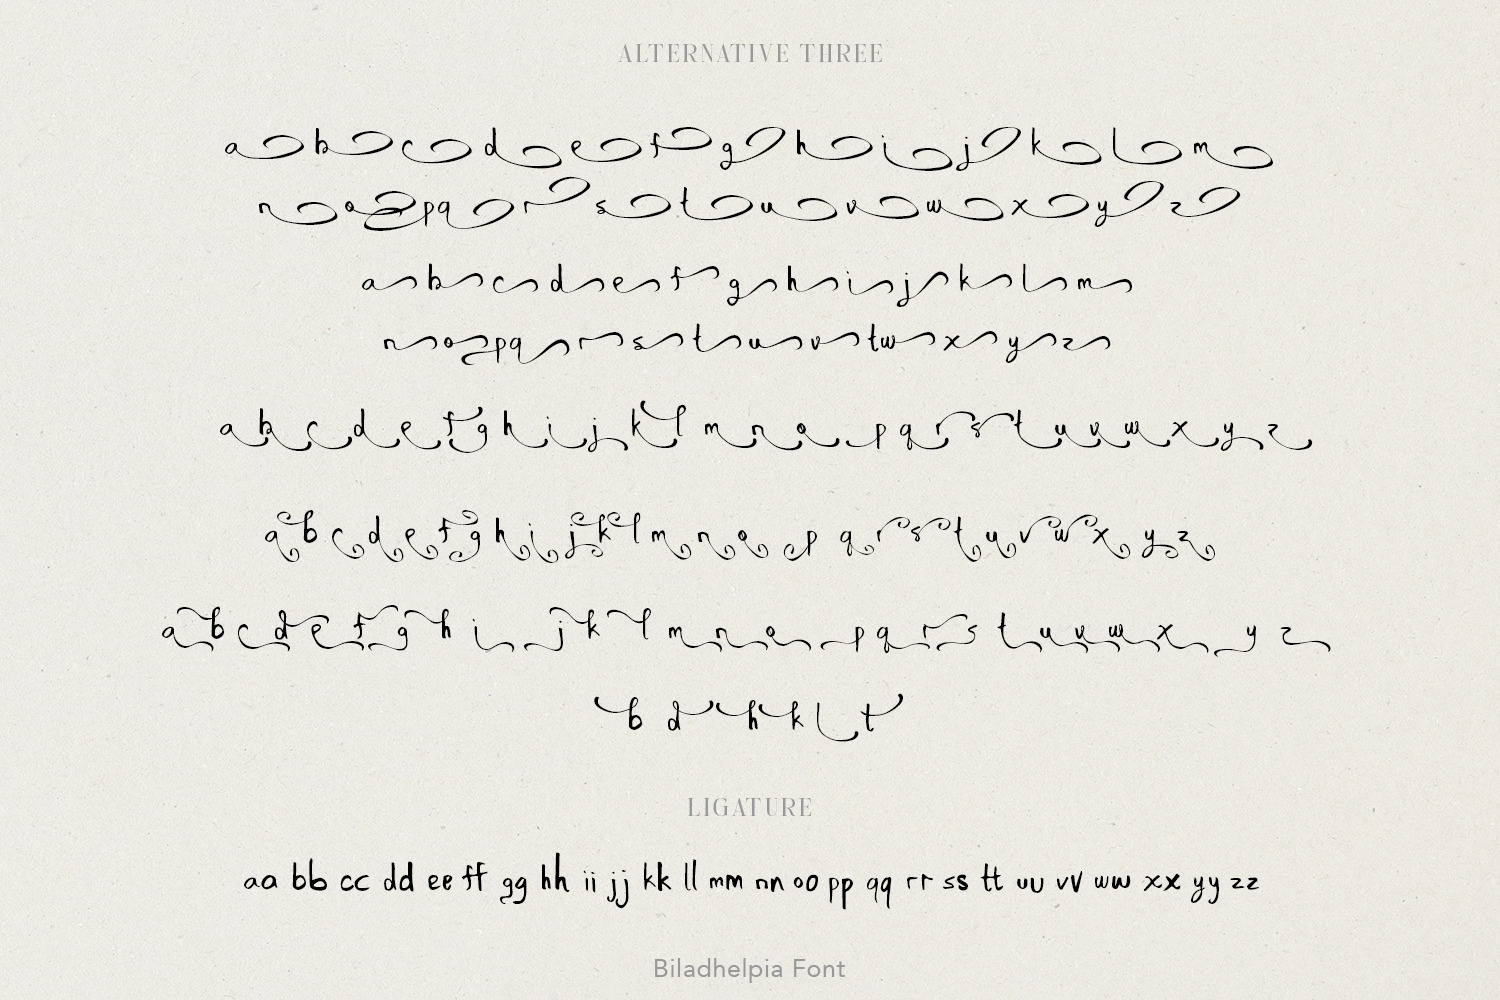 ALTERNATIVE THREE
a b c d e f g h i j k l m
n o p q r s t u v w x y z
a b c d e f g h i j k l m
n o p q r s t u v tw x y z
a b c d e f g h i j k l m n o p q r s t u v w x y z
a b c d e f g h i j k l m n o p q r s t u v w x y z
a b c d e f g h i j k l m n o p q r s t u v w x y z
b d h k l t
LIGATURE
aa bb cc dd ee ff gg hh ii jj kk ll mm nn oo pp qq rr ss tt uu vv ww xx yy zz
Biladhelpia Font